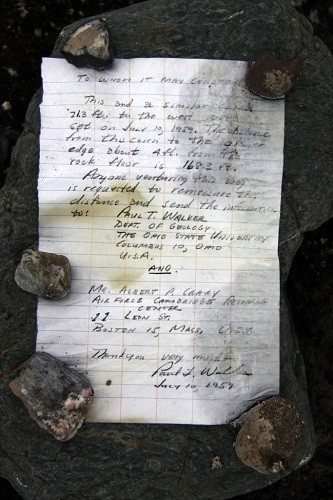 TO WHOM IT MAY CONCERN
This and a similar cairn
to the west were
set on July 10, 1959. The distance
from this cairn to the glacier
edge about 4 ft. from the
rock floor is 168.3 ft.
Anyone venturing this way
is requested to remeasure this
distance and send the information
to: PAUL T. WALKER
DEPT. OF GEOLOGY
THE OHIO STATE UNIVERSITY
COLUMBUS 10, OHIO
U.S.A.
AND:
MR. ALBERT P. CRARY
AIR FORCE CAMBRIDGE RESEARCH
CENTER
LEON ST.
BOSTON 15, MASS, U.S.A.
Thank you very much
Paul T. Walker
July 10, 1959